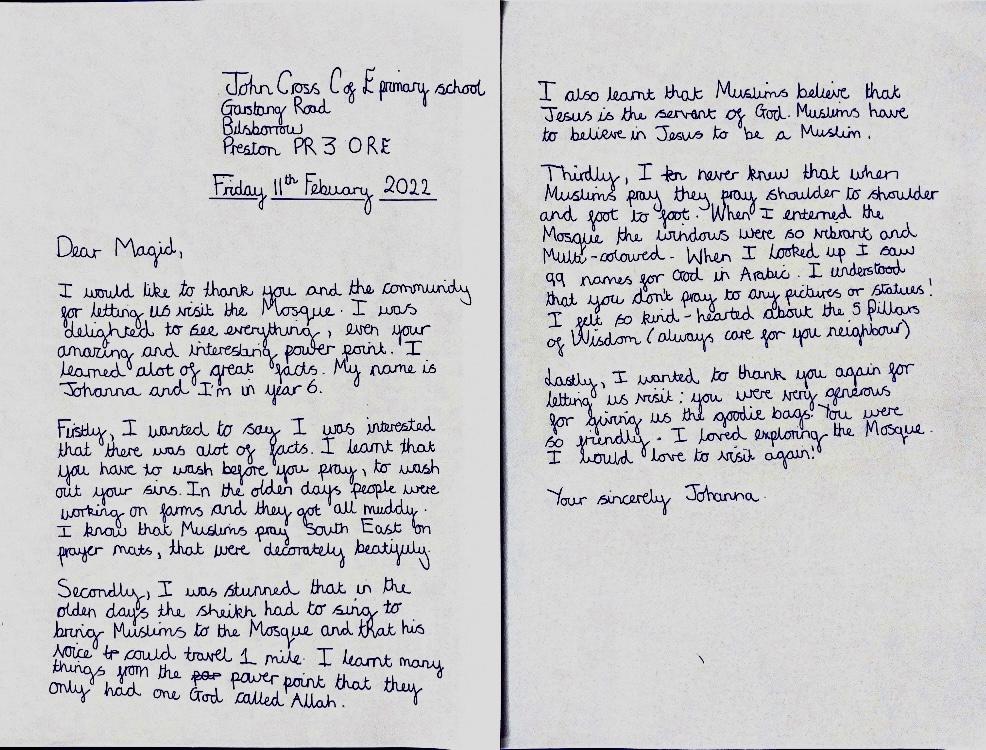 John Cross C of E primary school
Garstang Road
Bilsborrow
Preston PR3 0RE
Friday 11th Febuary 2022
Dear Magid,
I would like to thank you and the community
for letting us visit the Mosque. I was
delighted to see everything, even your
amazing and interesting power point. I
learned alot of great facts. My name is
Johanna and I'm in year 6.
Firstly, I wanted to say I was interested
that there was alot of facts. I learnt that
you have to wash before you pray, to wash
out your sins. In the olden days people were
working on farms and they got all muddy.
I know that Muslims pray South East on
prayer mats, that were decorately beatifuly.
Secondly, I was stunned that in the
olden days the sheikh had to sing to
bring Muslims to the Mosque and that his
voice could travel 1 mile. I learnt many
things from the power point that they
only had one God called Allah.
I also learnt that Muslims believe that
Jesus is the servant of God. Muslims have
to believe in Jesus to be a Muslim.
Thirdly, I never knew that when
Muslims pray they pray shoulder to shoulder
and foot to foot. When I enterned the
Mosque the windows were so vibrant and
Multi-coloured. When I looked up I saw
99 names for God in Arabic. I understood
that you don't pray to any pictures or statues!
I felt so kind-hearted about the 5 Pillars
of Wisdom (always care for you neighbour)
Lastly, I wanted to thank you again for
letting us visit: you were very generous
for giving us the goodie bags. You were
so friendly. I loved exploring the Mosque.
I would love to visit again!
Your sincerely Johanna.